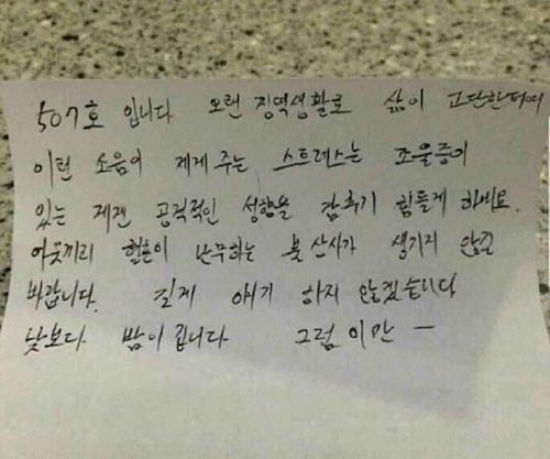 507호 입니다 오랜 징역생활로 삶이 고단한데
이런 소음이 제게 주는 스트레스는 조울증이
있는 제겐 공격적인 성향을 감추기 힘들게 하네요.
이웃끼리 혈흔이 난무하는 불상사가 생기지 않길
바랍니다. 길게 얘기 하지 않겠습니다
낮보다 밤이 깁니다 그럼 이만 —